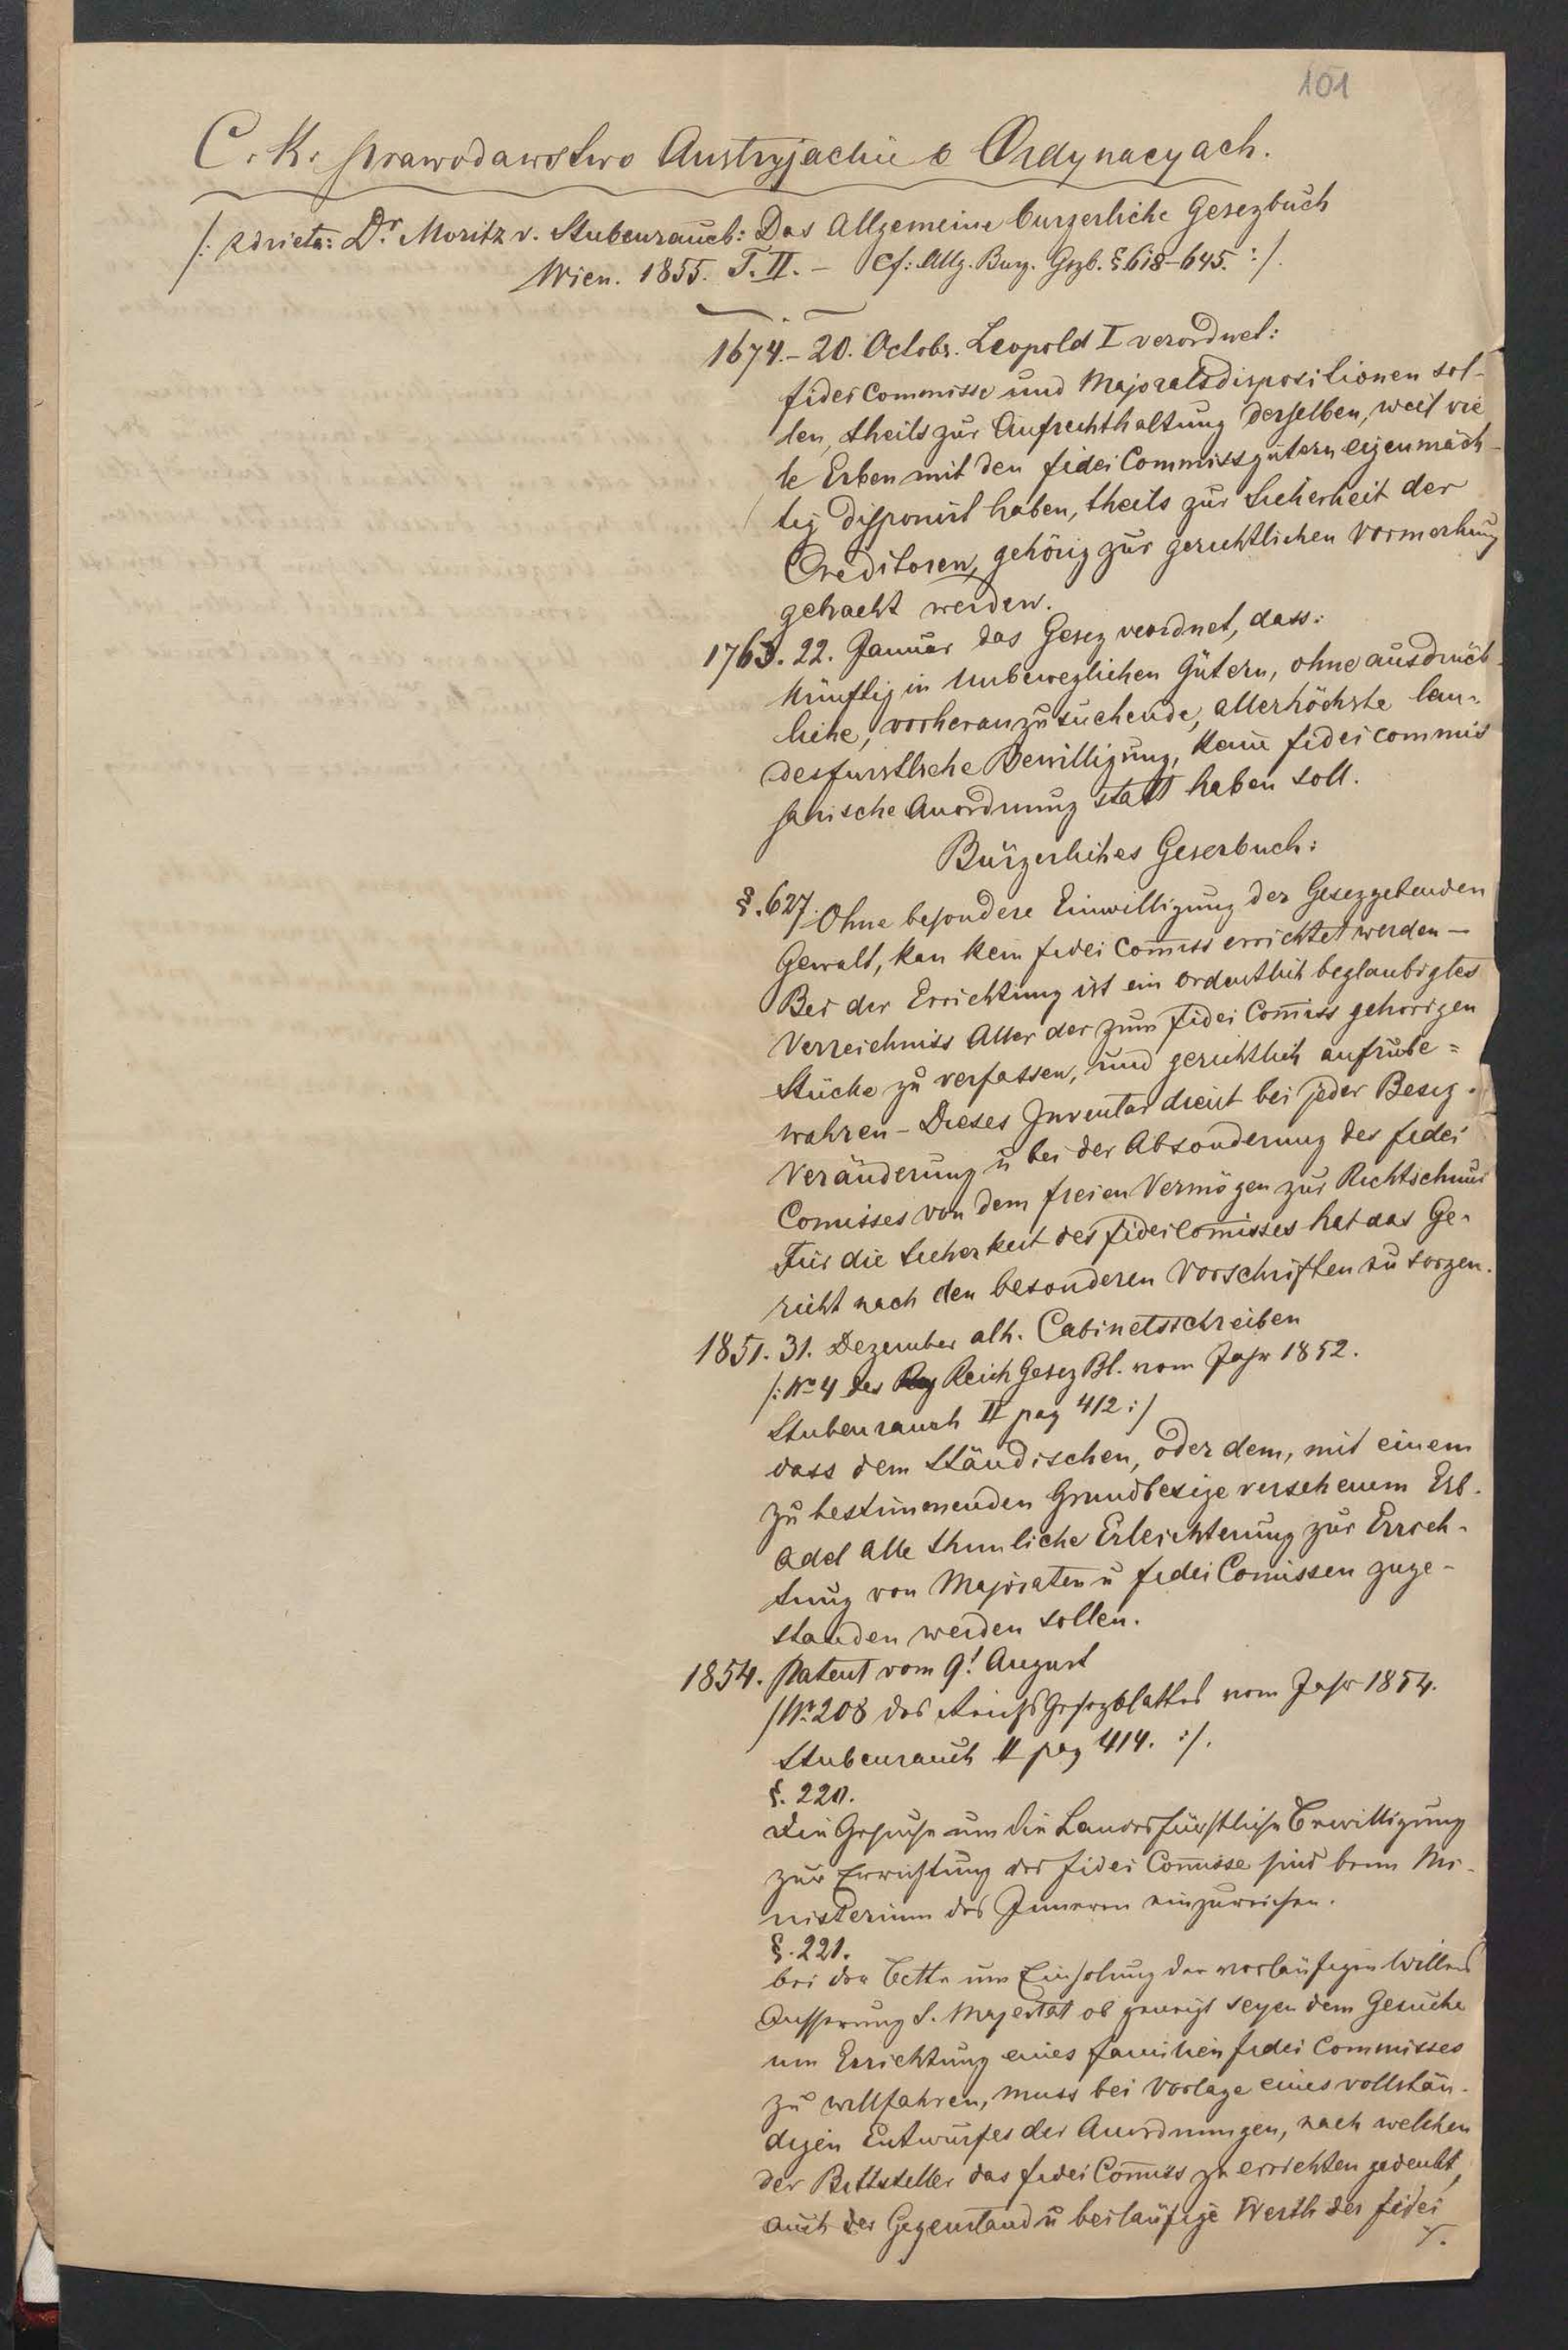 101
C. K. prawodawstwo Austryjackie o Ordynacyach.
/: z dzieła: Dr. Moritz v. Stubenrauch: Das Allgemeine burgerliche Gesezbuch
Wien. 1855. T. II. – Cf: Allg. Burg. Gszb. § 618–645. :/
1674. – 20. Octobr. Leopold I verordnet:
fideicommisse und Majoratsdispositionen sol-
len, theils zur Aufrechthaltung derselben, weil vie
le Erben mit den fidei Commissgütern eigenmäch-
tig disponirt haben, theils zur Sicherheit der
Creditoren, gehörig zur gerichtlichen Vormerkung
gebracht werden.
1763. 22. Januar das Gesez verordnet, dass:
künftig in Unbeweglichen Gütern, ohne ausdrück-
liche, vorheranzusuchende, allerhöchste lan-
desfurstliche Bewilligung, kein fideicommis
sarische Anordnung statt haben soll.
Bürgerliches Gesezbuch:
§. 627. Ohne besondere Einwilligung der Gesezgebenden
Gewalt, kan kein fidei Com̄iss errichtet werden –
Bei der Errichtung ist ein ordentlich beglaubigtes
Verzeichniss Aller der zum fidei Com̄iss gehorigen
Stücke zu verfassen, und gerichtlich aufzube=
wahren – Dieses Inventar dient bei jeder Besiz-
Veränderung u bei der Absonderung des fidei
Comisses von dem freien Vermögen zur Richtschnur
Für die Sicherheit des fideicom̄isses hat das Ge-
richt nach den besonderen Vorschriften zu sorgen.
1851. 31. Dezember alh. Cabinetsschreiben
/: No 4 des Reich Gesez Bl. vom Jahr 1852.
Stubenrauch II pag 412 :/
dass dem Ständischen, oder dem, mit einem
zu bestimmenden Grundbesize versehenem Erb-
adel Alle thunliche Erleichterung zur Errich-
tung von Majoraten u fidei Comissen zuge-
standen werden sollen.
1854. Patent vom 9t August
/ Nr. 208 des Reichsgesezblattes vom Jahr 1854.
Stubenrauch II pag 414. :/.
§. 220.
Die Gesuche um die Landesfürstliche Bewilligung
zur Errichtung der fidei Com̄isse sind beim Mi-
nisterium des Inneren einzureichen.
§. 221.
bei der Bitte um Einholung der vorläufigen Willens
Äusserung S. Majestät ob geneigt seyen dem Gesuche
um Errichtung eines familien fidei Commisses
zu willfahren, muss bei Vorlage eines vollstän-
digen Entwurfes der Anordnungen, nach welchen
der Bittsteller das fidei Com̄iss zu errichten gedenkt,
auch der Gegenstand u beiläufige Werth des fidei